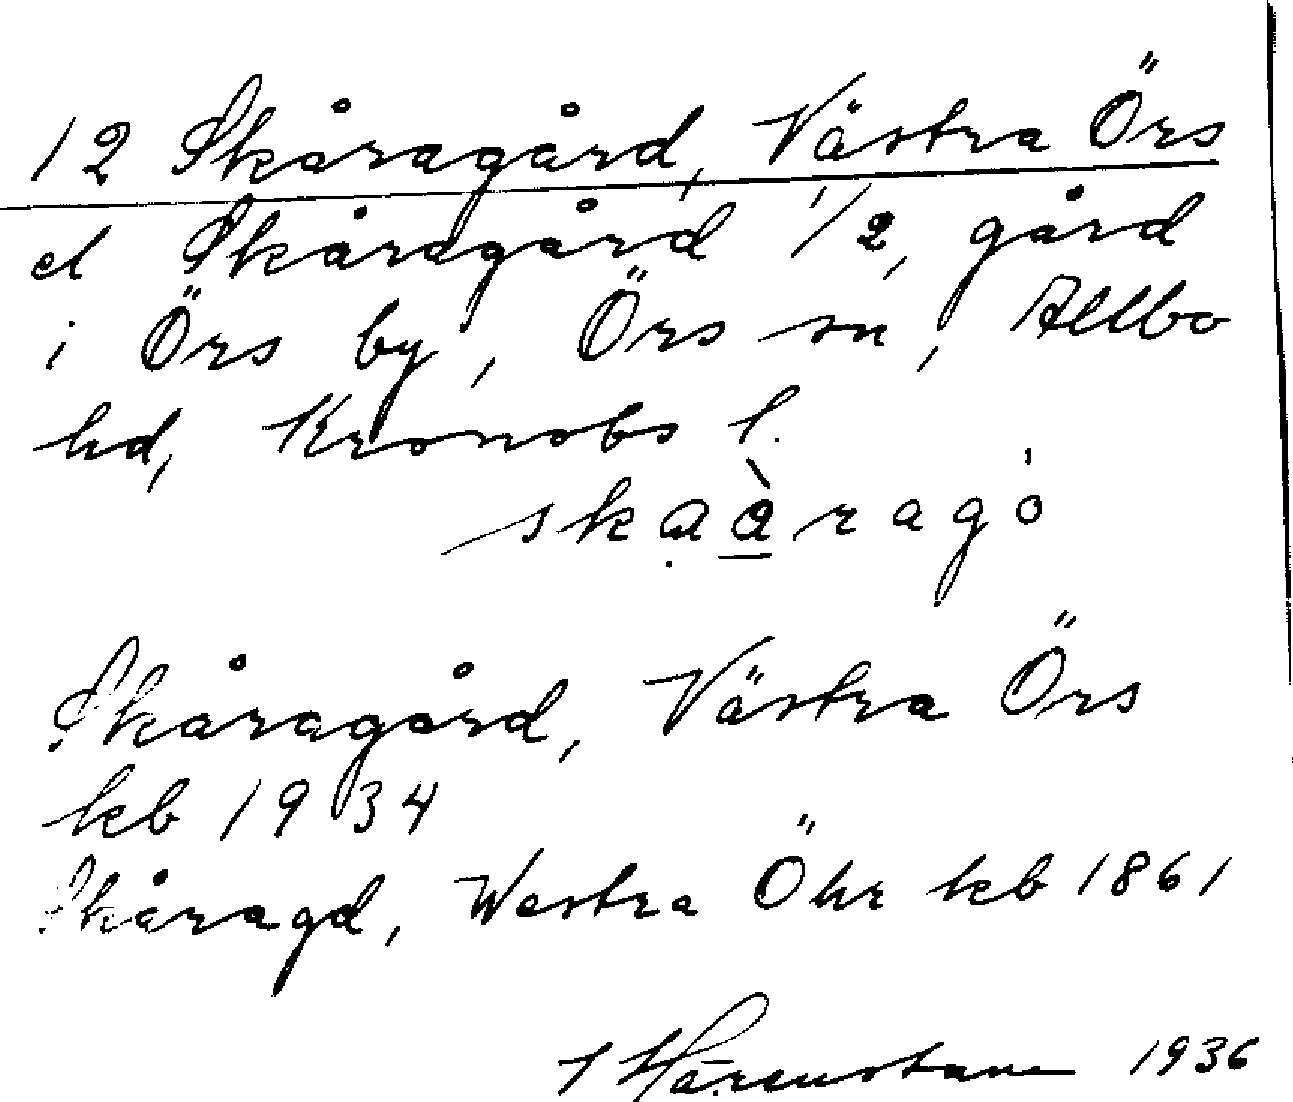 12 Skåragård, Västra Örs
el Skåragård 1/2, gård
i Örs by, Örs sn, Allbo
hd, Kronobs l.
skaàragó
Skåragård, Västra Örs
kb 1934
Skåragd, Westra Öhr kb 1861
1936